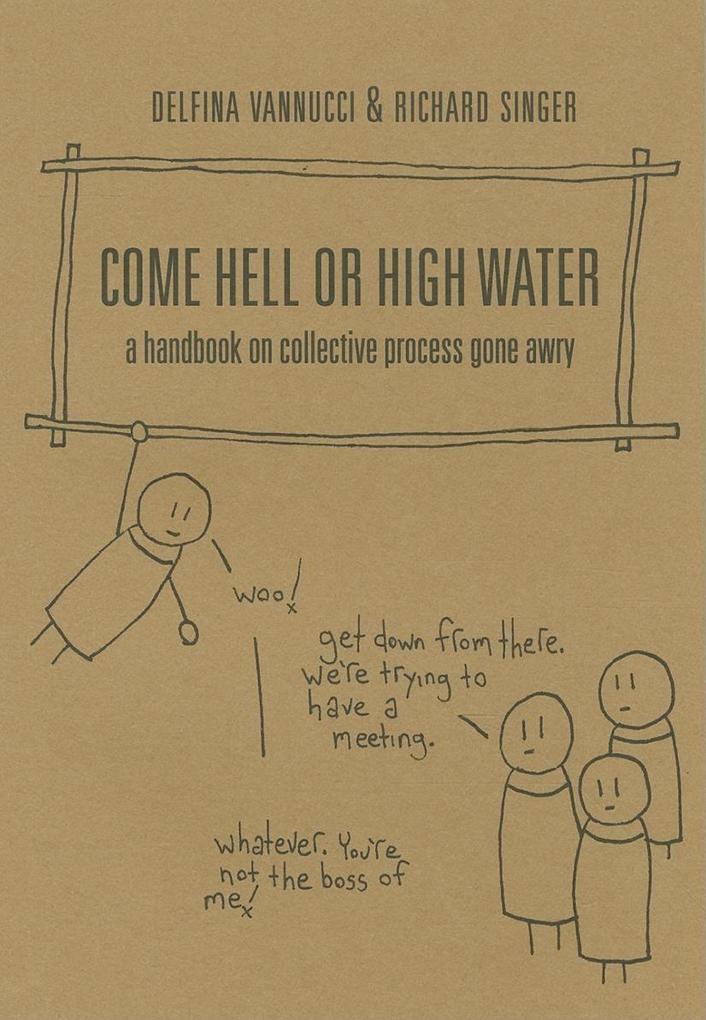 DELFINA VANNUCCI & RICHARD SINGER
COME HELL OR HIGH WATER
a handbook on collective process gone awry
woo!
get down from there.
we're trying to
have a
meeting.
whatever. You're
not the boss of
me!